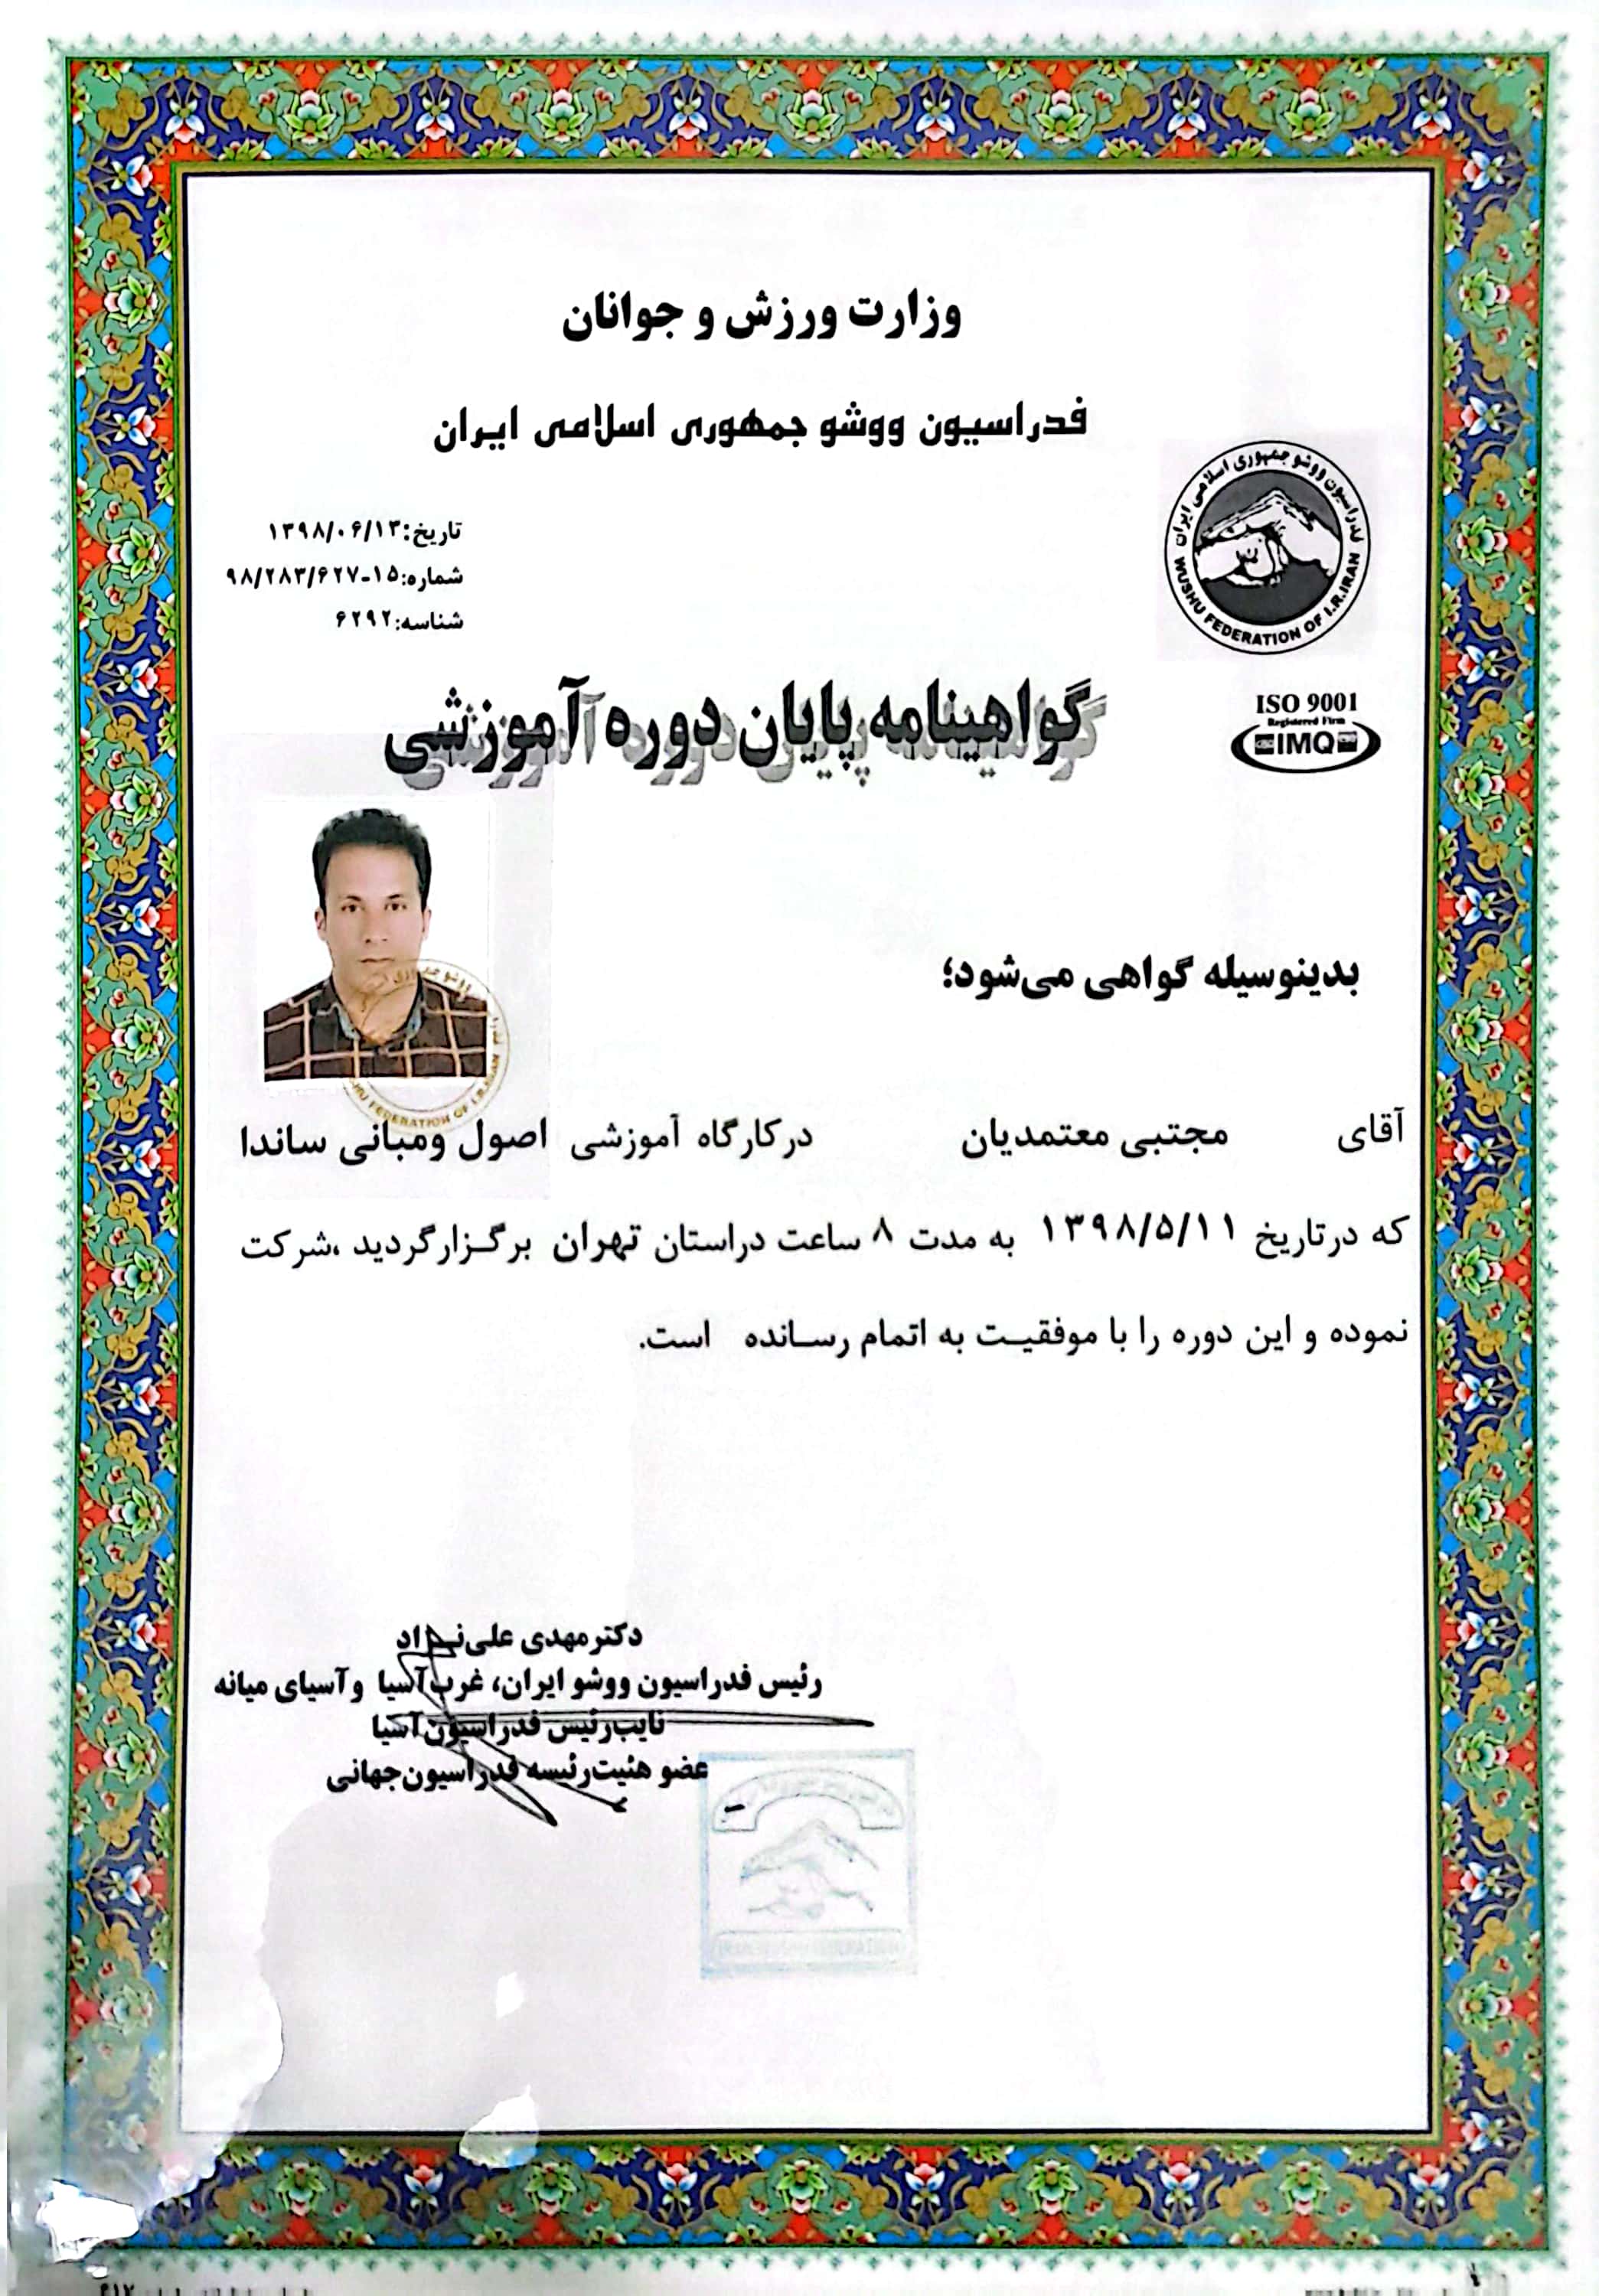 وزارت ورزش و جوانان
فدراسیون ووشو جمهوری اسلامی ایران
فدراسیون ووشو جمهوری اسلامی ایران
WUSHU FEDERATION OF I.R.IRAN
تاریخ:۱۳۹۸/۰۶/۱۳
شماره:۱۵-۹۸/۲۸۳/۶۲۷
شناسه:۶۲۹۲
گواهینامه پایان دوره آموزشی
ISO 9001
Registered Firm
IMQ
بدینوسیله گواهی می‌شود؛
FEDERATION OF I.R.IRAN
آقای مجتبی معتمدیان درکارگاه آموزشی اصول ومبانی ساندا
که درتاریخ ۱۳۹۸/۵/۱۱ به مدت ۸ ساعت دراستان تهران برگـزارگردید ،شرکت
نموده و این دوره را با موفقیـت به اتمام رسـانده است.
دکترمهدی علی‌نـژاد
رئیس فدراسیون ووشو ایران، غرب‌آسیا وآسیای میانه
نایب‌رئیس فدراسیون‌آسیا
عضو هئیت‌رئیسه فدراسیون‌جهانی